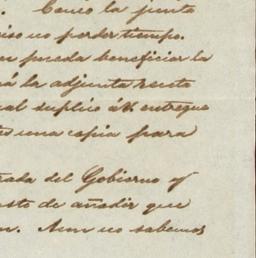 Como la junta
iso no perder tiempo.
n pueda beneficiar la
á la adjunta
al suplico á V. entregue
una copia para
ada del Gobierno y
sto de añadir que
n. Aun no sabemos